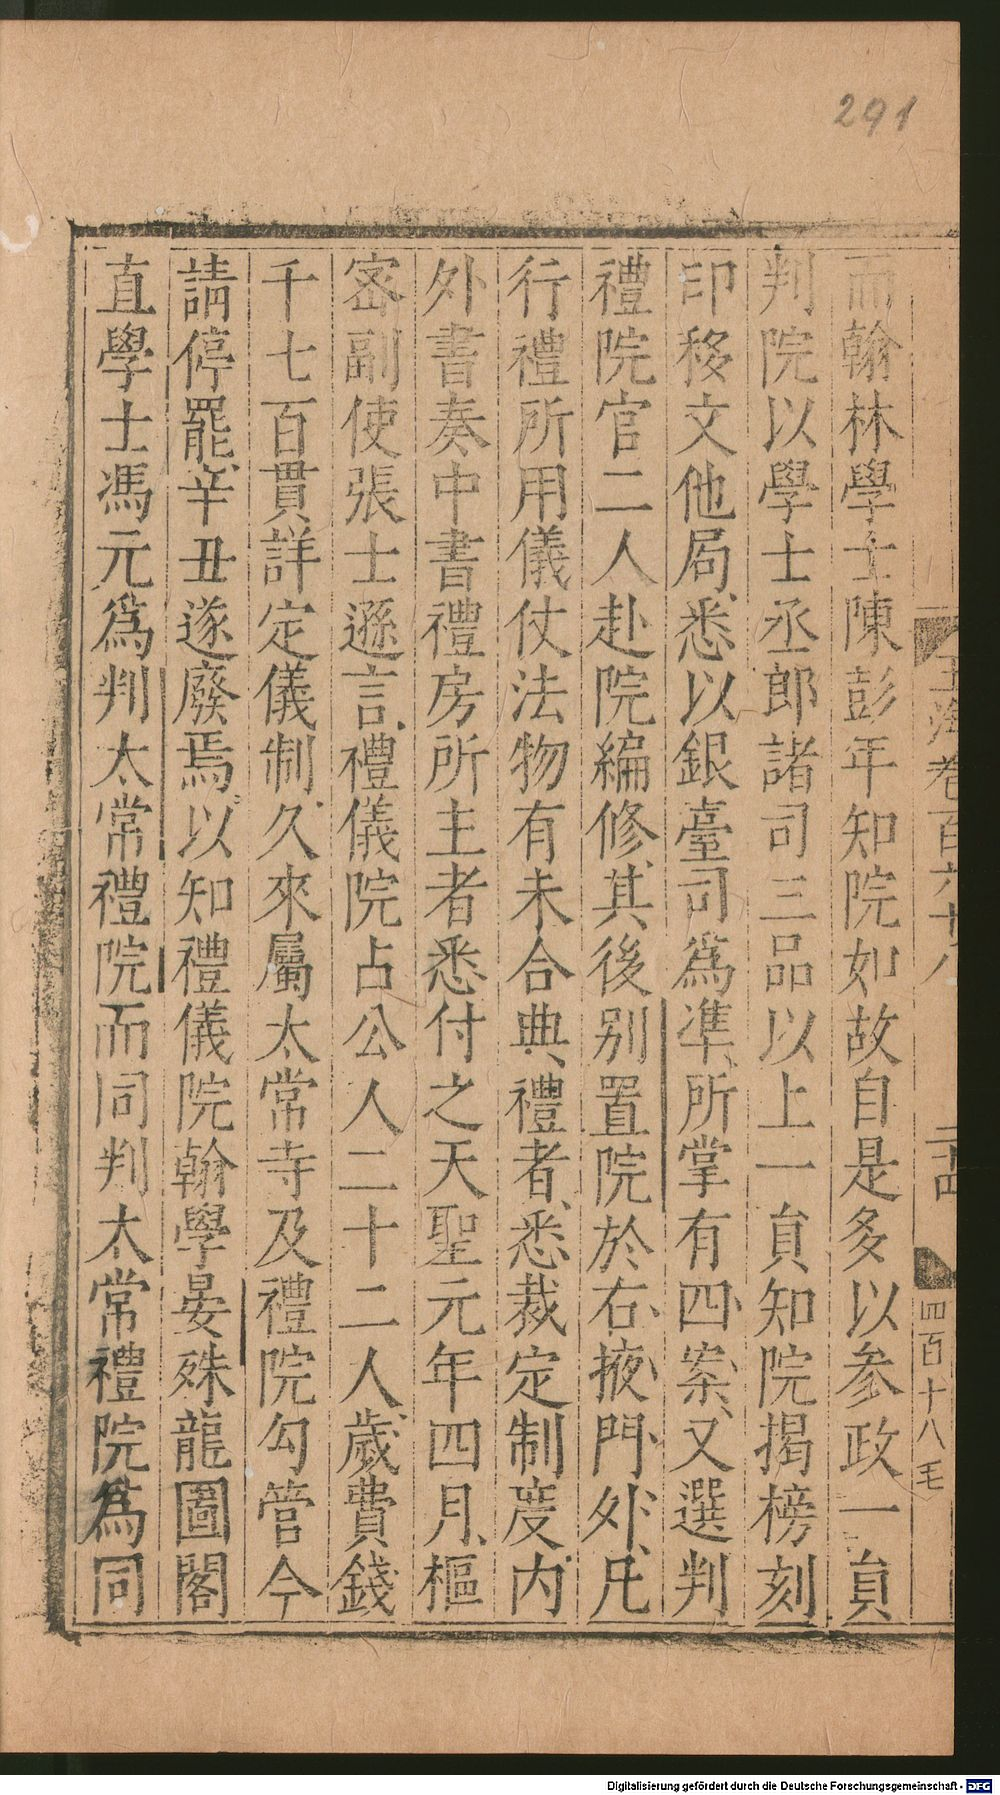 291
玉海卷百六十八 二十四 四百十八 毛
而翰林學士陳彭年知院如故自是多以参政一負
判院以學士丞郎諸司三品以上一負知院揭榜刻
印移文他局悉以銀臺司爲凖所掌有四案又選判
禮院官二人赴院編修其後别置院於右掖門外凡
行禮所用儀仗法物有未合典禮者悉裁定制度内
外書奏中書禮房所主者悉付之天聖元年四月樞
宻副使張士遜言禮儀院占公人二十二人歲費錢
千七百貫詳定儀制久來屬太常寺及禮院勾管今
請停罷辛丑遂廢焉以知禮儀院翰學晏殊龍圖閣
直學士馮元爲判太常禮院而同判太常禮院爲同
Digitalisierung gefördert durch die Deutsche Forschungsgemeinschaft - DFG